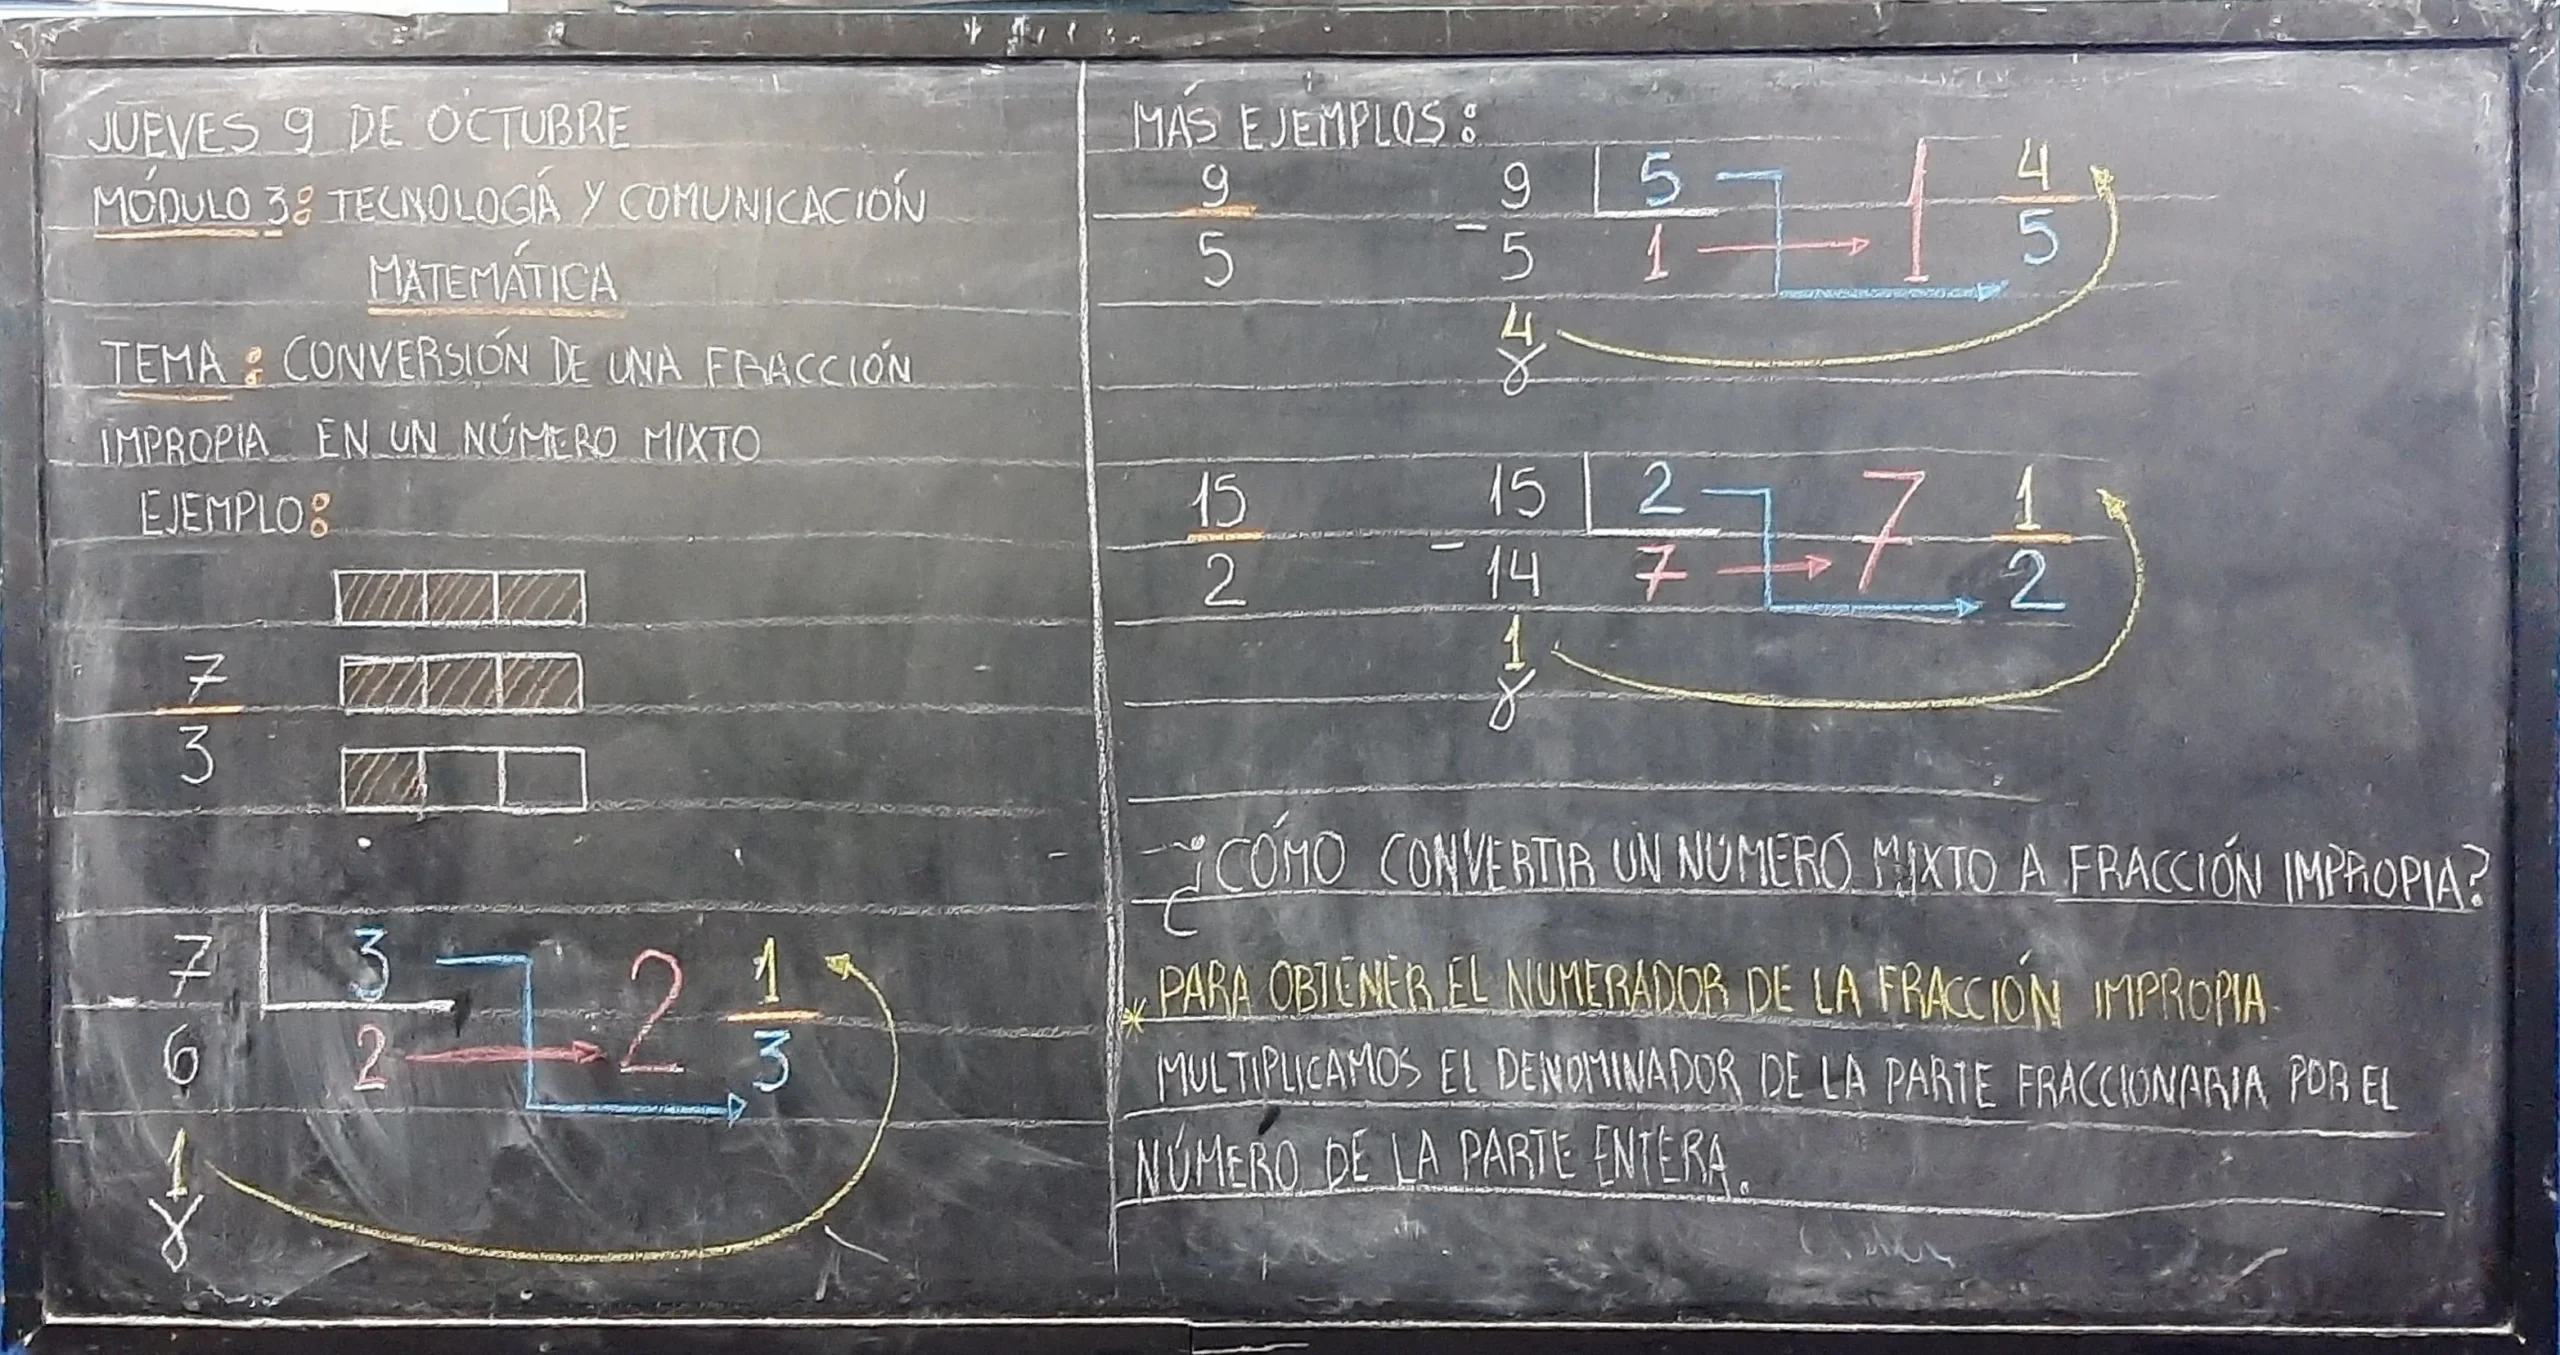 JUEVES 9 DE OCTUBRE
MÓDULO 3: TECNOLOGÍA Y COMUNICACIÓN
MATEMÁTICA
TEMA: CONVERSIÓN DE UNA FRACCIÓN
IMPROPIA EN UN NÚMERO MIXTO
EJEMPLO:
7
3
7 3 1
- 2 3
6 2
1
MÁS EJEMPLOS:
9 9 5 1 4
5 - 5 1 5
4
15 15 2 7 1
2 - 14 7 2
1
¿CÓMO CONVERTIR UN NÚMERO MIXTO A FRACCIÓN IMPROPIA?
* PARA OBTENER EL NUMERADOR DE LA FRACCIÓN IMPROPIA
MULTIPLICAMOS EL DENOMINADOR DE LA PARTE FRACCIONARIA POR EL
NÚMERO DE LA PARTE ENTERA.